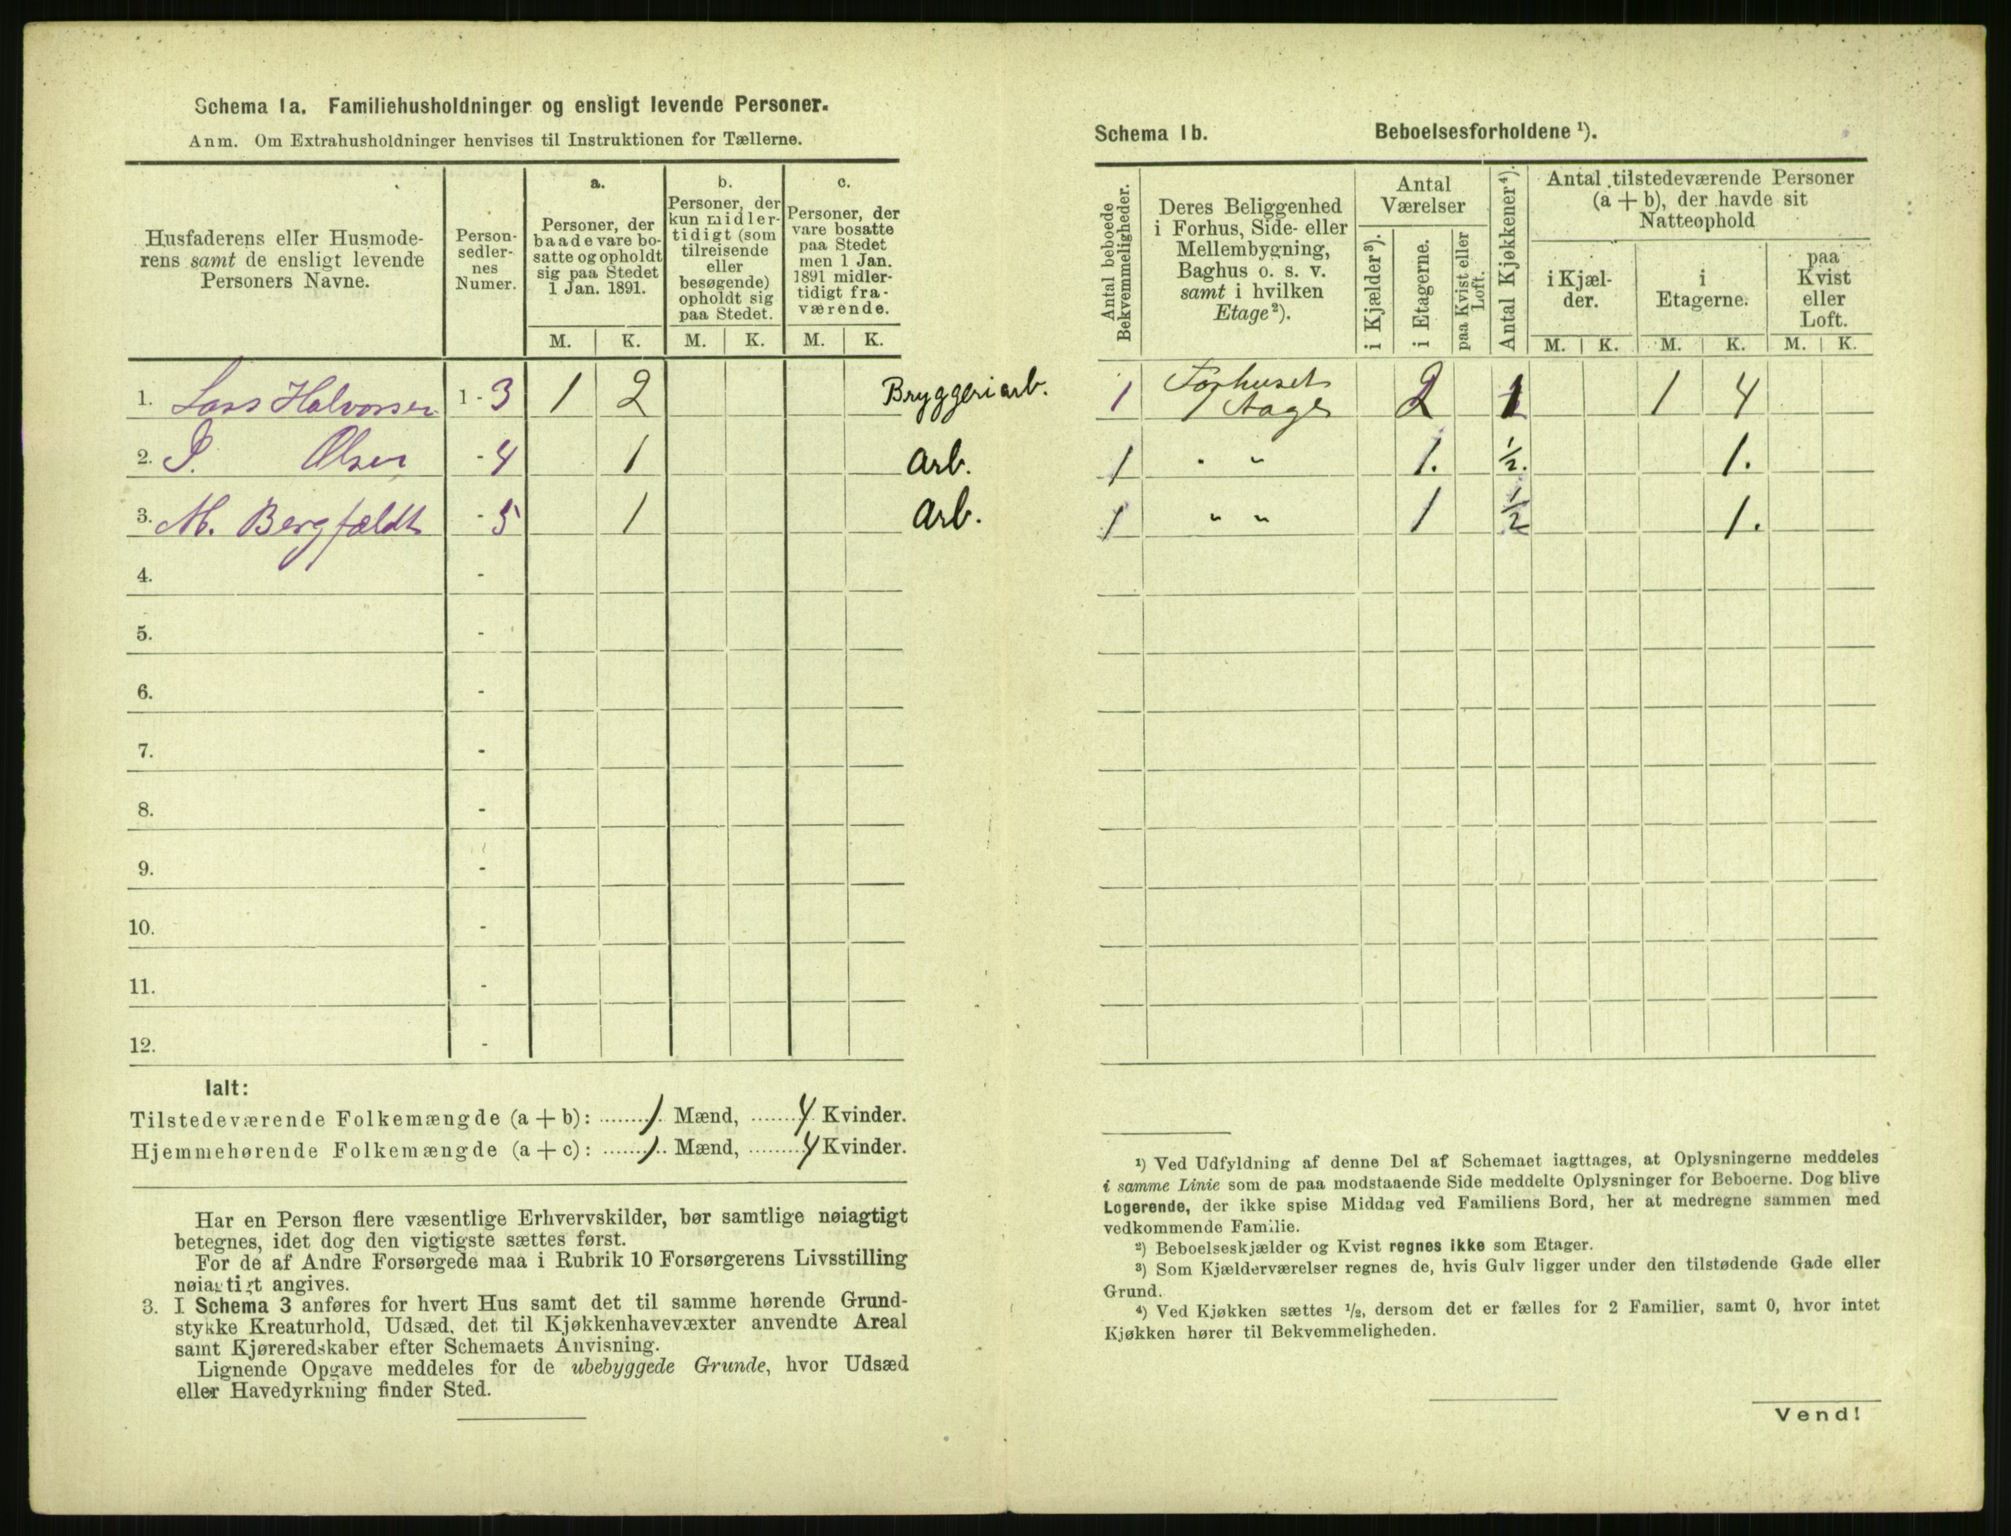 Schema 1a. Familiehusholdninger og ensligt levende Personer.
Anm. Om Extrahusholdninger henvises til Instruktionen for Tællerne.
Husfaderens eller Husmode-
rens samt de ensligt levende
Personers Navne.
Person-
sedler-
nes
Numer.
a.
Personer, der
baade vare bo-
satte og opholdt
sig paa Stedet
1 Jan. 1891.
b.
Personer, der
kun midler-
tidigt (som
tilreisende
eller
besøgende)
opholdt sig
paa Stedet.
c.
Personer, der
vare bosatte
paa Stedet
men 1 Jan.
1891 midler-
tidigt fra-
værende.
M. K. M. K. M. K.
1. Lars Halvorsen 1 - 3 1 2 Bryggeriarb.
2. P. Olsen - 4 1 Arb.
3. M. Bergfeldt - 5 1 Arb.
4. -
5. -
6. -
7. -
8. -
9. -
10. -
11. -
12. -
Ialt:
Tilstedeværende Folkemængde (a + b): ........1.. Mænd, .......4. Kvinder.
Hjemmehørende Folkemængde (a + c): .......1.. Mænd, ........4 Kvinder.
Har en Person flere væsentlige Erhvervskilder, bør samtlige nøiagtigt
betegnes, idet dog den vigtigste sættes først.
For de af Andre Forsørgede maa i Rubrik 10 Forsørgerens Livsstilling
nøiagtigt angives.
3. I Schema 3 anføres for hvert Hus samt det til samme hørende Grund-
stykke Kreaturhold, Udsæd, det til Kjøkkenhavevæxter anvendte Areal
samt Kjøreredskaber efter Schemaets Anvisning.
Lignende Opgave meddeles for de ubebyggede Grunde, hvor Udsæd
eller Havedyrkning finder Sted.
Schema 1b. Beboelsesforholdene ¹).
Antal beboede
Bekvemmeligheder.
Deres Beliggenhed
i Forhus, Side- eller
Mellembygning,
Baghus o. s. v.
samt i hvilken
Etage²).
Antal
Værelser
i Kjælder³).
i Etagerne.
paa Kvist eller
Loft.
Antal Kjøkkener⁴).
Antal tilstedeværende Personer
(a + b), der havde sit
Natteophold
i Kjæl-
der.
i
Etagerne.
paa
Kvist
eller
Loft.
M. K. M. K. M. K.
1 Forhuset 2 1 1 4
1 " " 1. ½. 1.
1 " " 1 ½ 1.
¹) Ved Udfyldning af denne Del af Schemaet iagttages, at Oplysningerne meddeles
i samme Linie som de paa modstaaende Side meddelte Oplysninger for Beboerne. Dog blive
Logerende, der ikke spise Middag ved Familiens Bord, her at medregne sammen med
vedkommende Familie.
²) Beboelseskjælder og Kvist regnes ikke som Etager.
³) Som Kjælderværelser regnes de, hvis Gulv ligger under den tilstødende Gade eller
Grund.
⁴) Ved Kjøkken sættes ½, dersom det er fælles for 2 Familier, samt 0, hvor intet
Kjøkken hører til Bekvemmeligheden.
Vend!